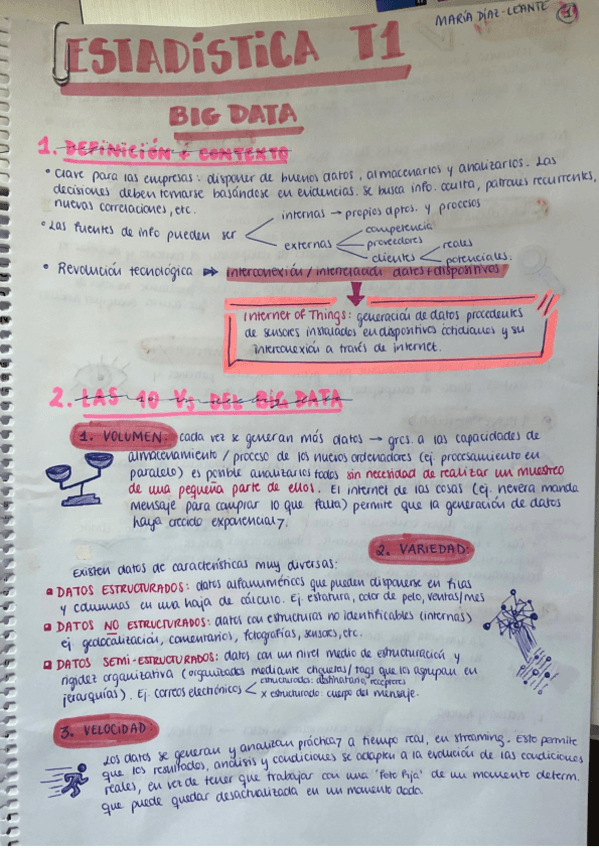 MARÍA DÍAZ-LEANTE 1
ESTADÍSTICA T1
BIG DATA
1. DEFINICIÓN + CONTEXTO
• Clave para las empresas: disponer de buenos datos, almacenarlos y analizarlos. Las
decisiones deben tomarse basándose en evidencias. Se busca info. oculta, patrones recurrentes,
nuevas correlaciones, etc.
• Las fuentes de info pueden ser
internas → propios dptos. y procesos
externas
competencia
proveedores
clientes
reales
potenciales.
• Revolución tecnológica ➡ interconexión / interrelación datos + dispositivos
Internet of Things: generación de datos procedentes
de sensores instalados en dispositivos cotidianos y su
interconexión a través de internet.
2. LAS 10 Vs DEL BIG DATA
1. VOLUMEN: cada vez se generan más datos → grcs. a las capacidades de
almacenamiento / proceso de los nuevos ordenadores (ej. procesamiento en
paralelo) es posible analizarlos todos sin necesidad de realizar un muestreo
de una pequeña parte de ellos. El internet de las cosas (ej. nevera manda
mensaje para comprar lo que falta) permite que la generación de datos
haya crecido exponencial7.
2. VARIEDAD:
Existen datos de características muy diversas:
DATOS ESTRUCTURADOS: datos alfanuméricos que pueden disponerse en filas
y columnas en una hoja de cálculo. Ej. estatura, color de pelo, ventas/mes
DATOS NO ESTRUCTURADOS: datos con estructuras no identificables (internas)
ej. geolocalización, comentarios, fotografías, sensores, etc.
DATOS SEMI-ESTRUCTURADOS: datos con un nivel medio de estructuración y
rigidez organizativa (organizados mediante etiquetas / tags que los agrupan en
jerarquías). Ej. correos electrónicos
estructurados: destinatario, receptores
x estructurado: cuerpo del mensaje.
3. VELOCIDAD:
Los datos se generan y analizan práctica7 a tiempo real, en streaming. Esto permite
que los resultados, análisis y condiciones se adapten a la evolución de las condiciones
reales, en vez de tener que trabajar con una 'foto fija' de un momento determ.
que puede quedar desactualizada en un momento dado.